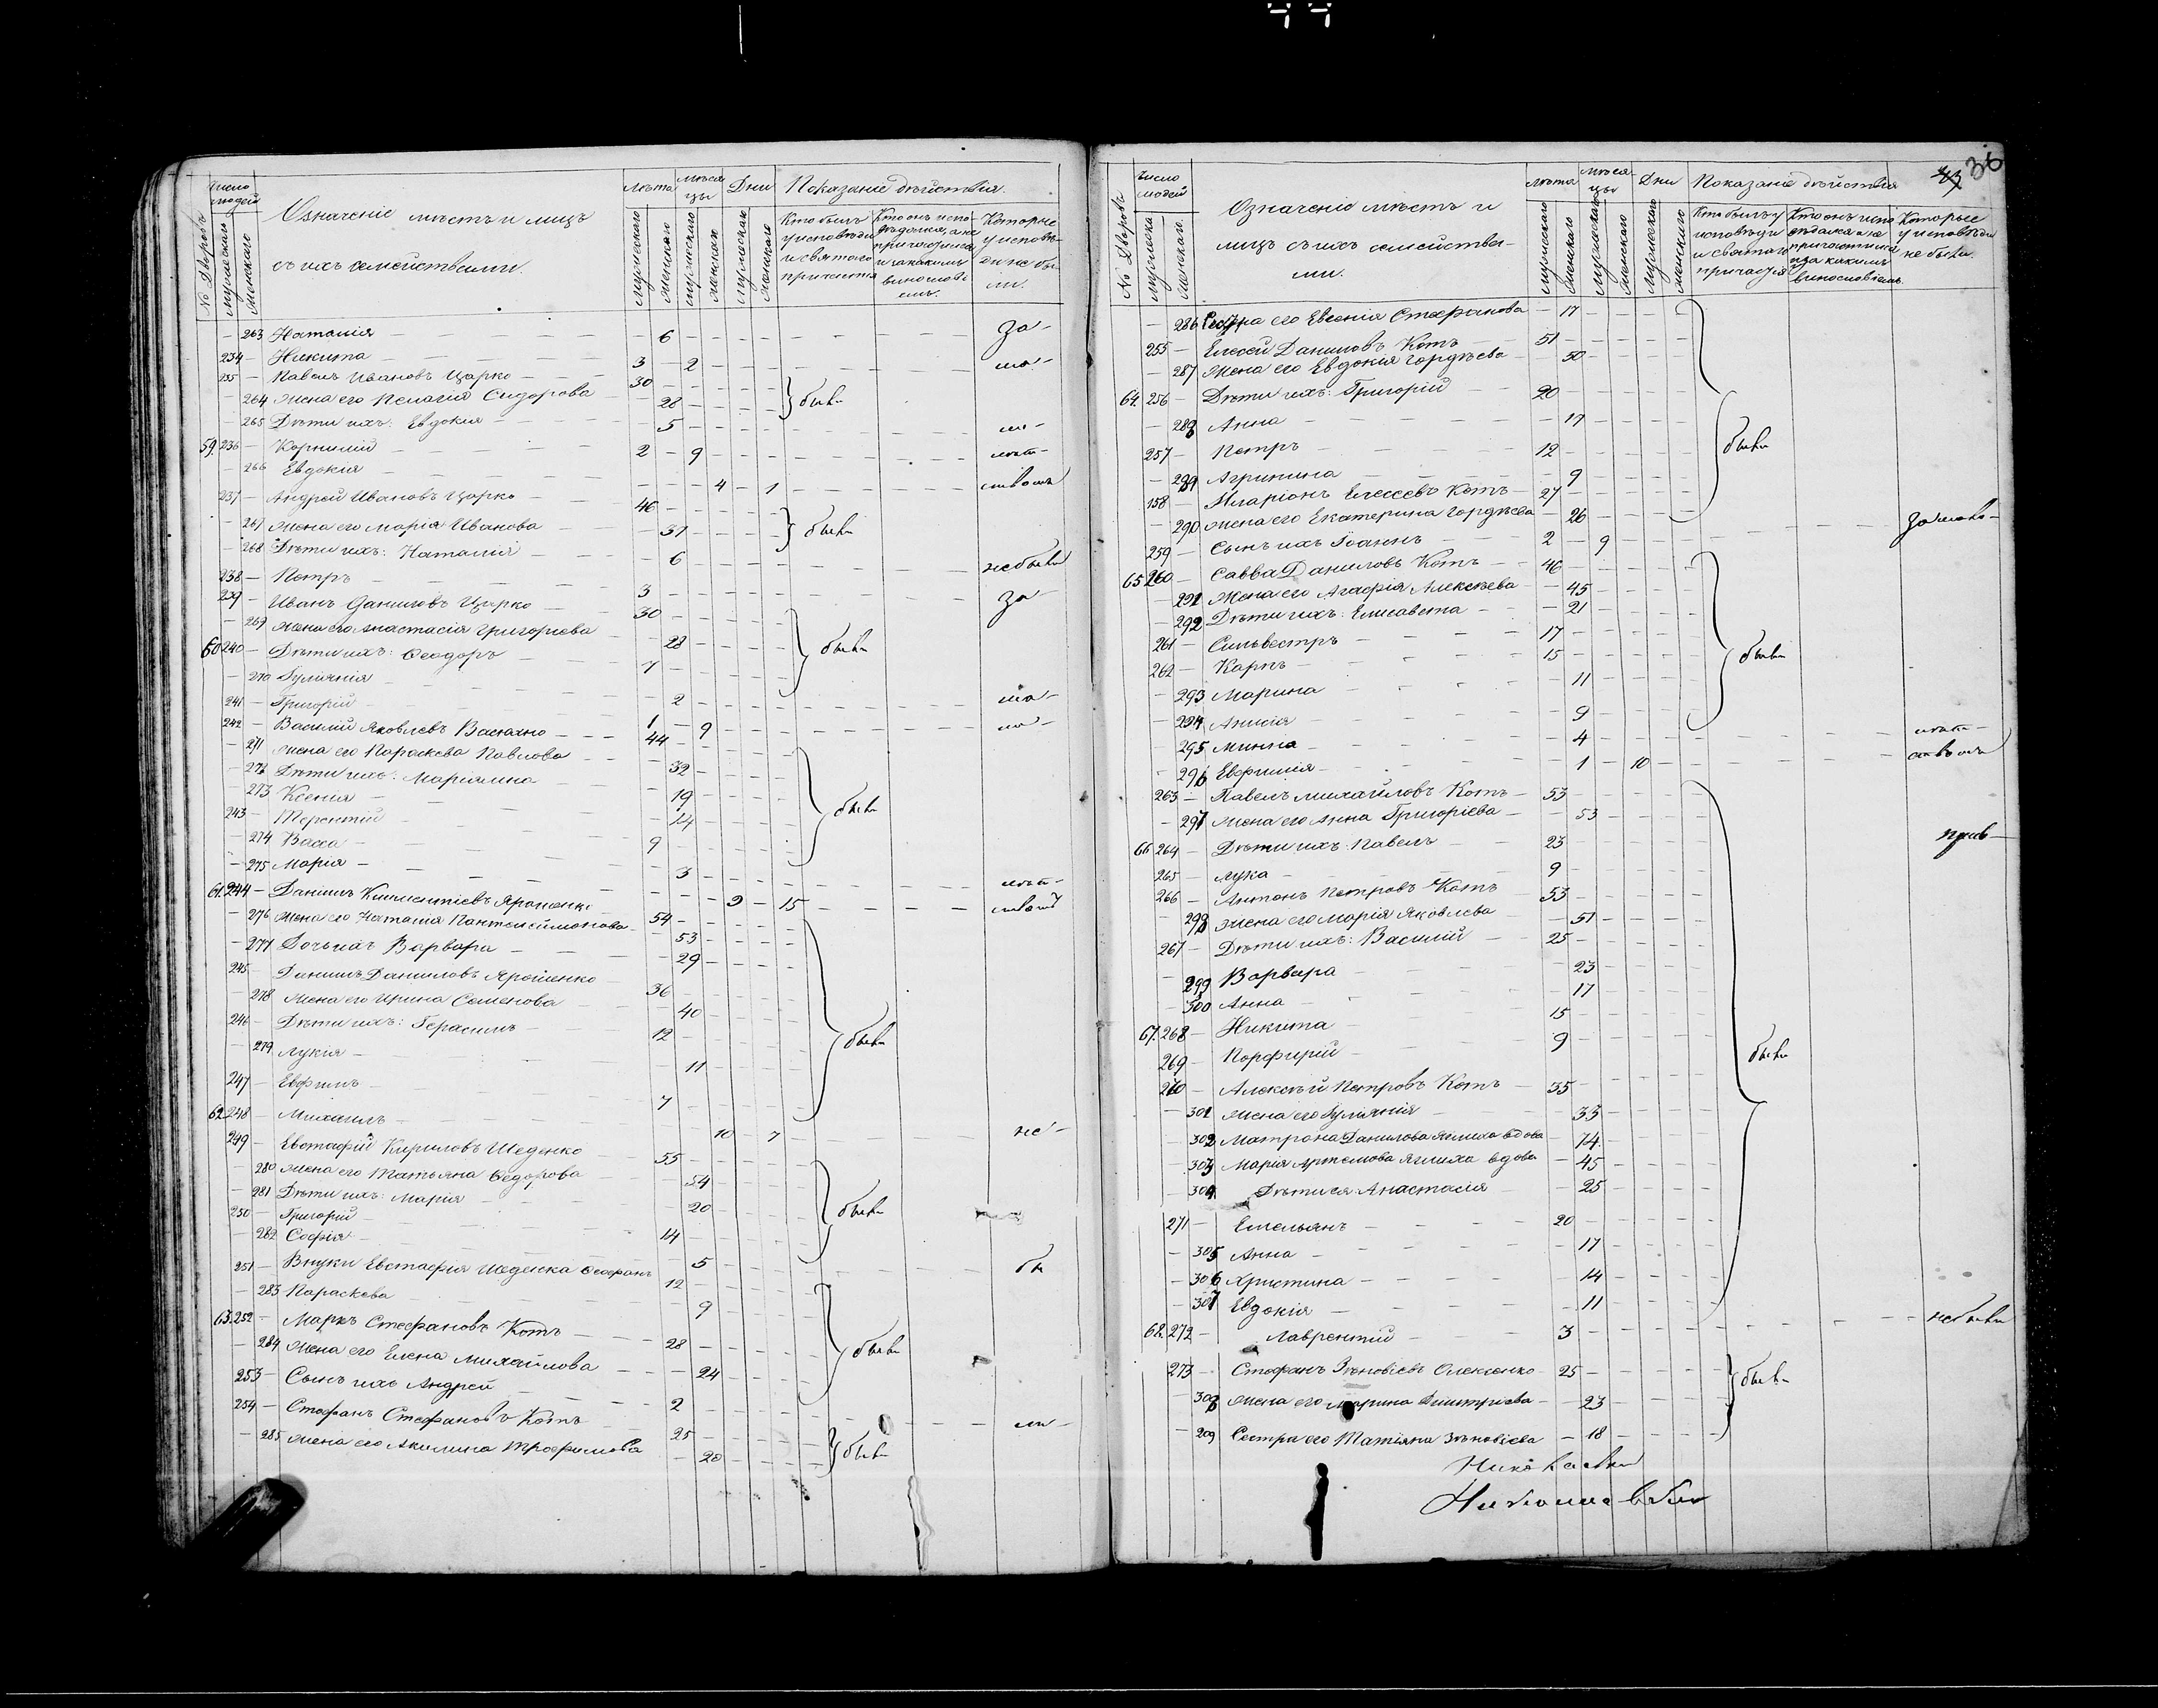 Число людей
№ Дворовъ
Мужескаго
Женскаго
Означеніе мѣстъ и лицъ
съ ихъ семействами.
Лѣта
Мѣсяцы
Дни
Показаніе дѣйствія.
Мужескаго Женскаго Мужескаго Женскаго Мужескаго Женскаго
Кто былъ у исповѣди и святаго причастія
Кто онъ исповѣдался, а не причастился и за какимъ винословіемъ.
Которые у исповѣди не были.
– 263 Наталія – 6 – – – – за –
234 – Никита 3 – 2 – – – ма –
235 – Павелъ Ивановъ Царко 30 – – – – –
– 264 Жена его Пелагія Сидорова – 28 – – – – были
– 265 Дѣти ихъ: Евдокія – 5 – – – – ло –
59. 236 – Корнилій 2 – 9 – – – лѣт –
– 266 Евдокія – – – 4 – 1 ствомъ
237 – Андрей Ивановъ Царко 46 – – – – –
– 267 Жена его Марія Иванова – 37 – – – – были
– 268 Дѣти ихъ: Наталія – 6 – – – – не были
238 – Петръ 3 – – – – – за –
239 – Иванъ Даниловъ Царко 30 – – – – –
– 269 Жена его Анастасія Григоріева – 28 – – – –
60 240 – Дѣти ихъ: Ѳеодоръ 7 – – – – – были
– 270 Гуліянія – 2 – – – – ма –
241 – Григорій 1 – 9 – – – ло –
242 – Василій Яковлевъ Васюхно 44 – – – – –
– 271 Жена его Параскева Павлова – 32 – – – –
– 272 Дѣти ихъ: Маріянна – 19 – – – –
– 273 Ксенія – 14 – – – – были
243 – Терентій 9 – – – – –
– 274 Васса – 3 – – – – лѣт –
– 275 Марія – – – 9 – 15 ствомъ
61. 244 – Даніилъ Климентіевъ Ярошенко 54 – – – – –
– 276 Жена его Наталія Пантелеймонова – 53 – – – –
– 277 Дочь ихъ Варвара – 29 – – – –
245 – Даніилъ Даниловъ Ярошенко 36 – – – – –
– 278 Жена его Ирина Семенова – 40 – – – –
246 – Дѣти ихъ: Герасимъ 12 – – – – – были
– 279 Лукія – 11 – – – –
247 – Евфимъ 7 – – – – –
62. 248 – Михаилъ – – 10 – 7 – не –
249 – Евстафій Кириловъ Шеденко 55 – – – – –
– 280 Жена его Татьяна Ѳедорова – 54 – – – –
– 281 Дѣти ихъ: Марія – 20 – – – – были
250 – Григорій 14 – – – – –
– 282 Софія – 5 – – – – бы
251 – Внуки Евстафія Шеденка Ѳеофанъ 12 – – – – –
– 283 Параскева – 9 – – – –
63. 252 – Маркъ Стефановъ Котъ 28 – – – – – были
– 284 Жена его Елена Михайлова – 24 – – – –
253 – Сынъ ихъ Андрей 2 – – – – – ли –
254 – Стефанъ Стефановъ Котъ 25 – – – – –
– 285 Жена его Акилина Трофимова – 20 – – – – были
36
Число людей
№ Дворовъ
Мужеска
Женскаго
Означеніе мѣстъ и
лицъ съ ихъ семейства-
ми.
Лѣта
Мѣсяцы
Дни
Показаніе дѣйствія
Мужескаго Женскаго Мужескаго Женскаго Мужескаго Женскаго
Кто былъ у исповѣди и святаго причастія
Кто онъ исповѣдался а не причастился и за какимъ винословіемъ.
Которые у исповѣди не были.
– 286 его Евгенія Стефанова – 17 – – – –
255 – Елесей Даниловъ Котъ 51 – – – – –
– 287 Жена его Евдокія Гордѣева – 50 – – – –
64. 256 – Дѣти ихъ: Григорій 20 – – – – –
– 288 Анна – 17 – – – –
257 – Петръ 12 – – – – – были
– 289 Агрипина – 9 – – – –
158 – Иларіонъ Елесеевъ Котъ 27 – – – – –
– 290 Жена его Екатерина Гордѣева – 26 – – – –
259 – Сынъ ихъ Іоаннъ 2 – 9 – – – за мало –
65 260 – Савва Даниловъ Котъ 46 – – – – –
– 291 Жена его Агафія Алексѣева – 45 – – – –
– 292 Дѣти ихъ: Елисавета – 21 – – – –
261 – Сильвестръ 17 – – – – –
262 – Карпъ 15 – – – – – были
– 293 Марина – 11 – – – –
– 294 Анисія – 9 – – – –
– 295 Минна – 4 – – – – лѣт –
– 296 Евфимія – 1 – 10 – – ствомъ
263 – Павелъ Михайловъ Котъ 53 – – – – –
– 297 Жена его Анна Григоріева – 53 – – – –
66 264 – Дѣти ихъ: Павелъ 23 – – – – –
265 – Лука 9 – – – – –
266 – Антонъ Петровъ Котъ 53 – – – – –
– 298 Жена его Марія Яковлева – 51 – – – –
267 – Дѣти ихъ: Василій 25 – – – – –
– 299 Варвара – 23 – – – –
– 300 Анна – 17 – – – –
67. 268 – Никита 15 – – – – –
269 – Порфирій 9 – – – – – были
270 – Алексѣй Петровъ Котъ 35 – – – – –
– 301 Жена его Гуліянія – 33 – – – –
– 302 Матрона Данилова Яшиха вдова – 74 – – – –
– 303 Марія Артемова Яшиха вдова – 45 – – – –
– 304 Дѣти ея: Анастасія – 25 – – – –
271 – Емельянъ 20 – – – – –
– 305 Анна – 17 – – – –
– 306 Христина – 14 – – – –
– 307 Евдокія – 11 – – – –
68. 272 – Лаврентій 3 – – – – – не были
273 – Стефанъ Зѣновіевъ Олексенко 25 – – – – – были
– 308 Жена его Марина Димитріева – 23 – – – –
– 209 Сестра его Татіяна Зѣновіева – 18 – – – –